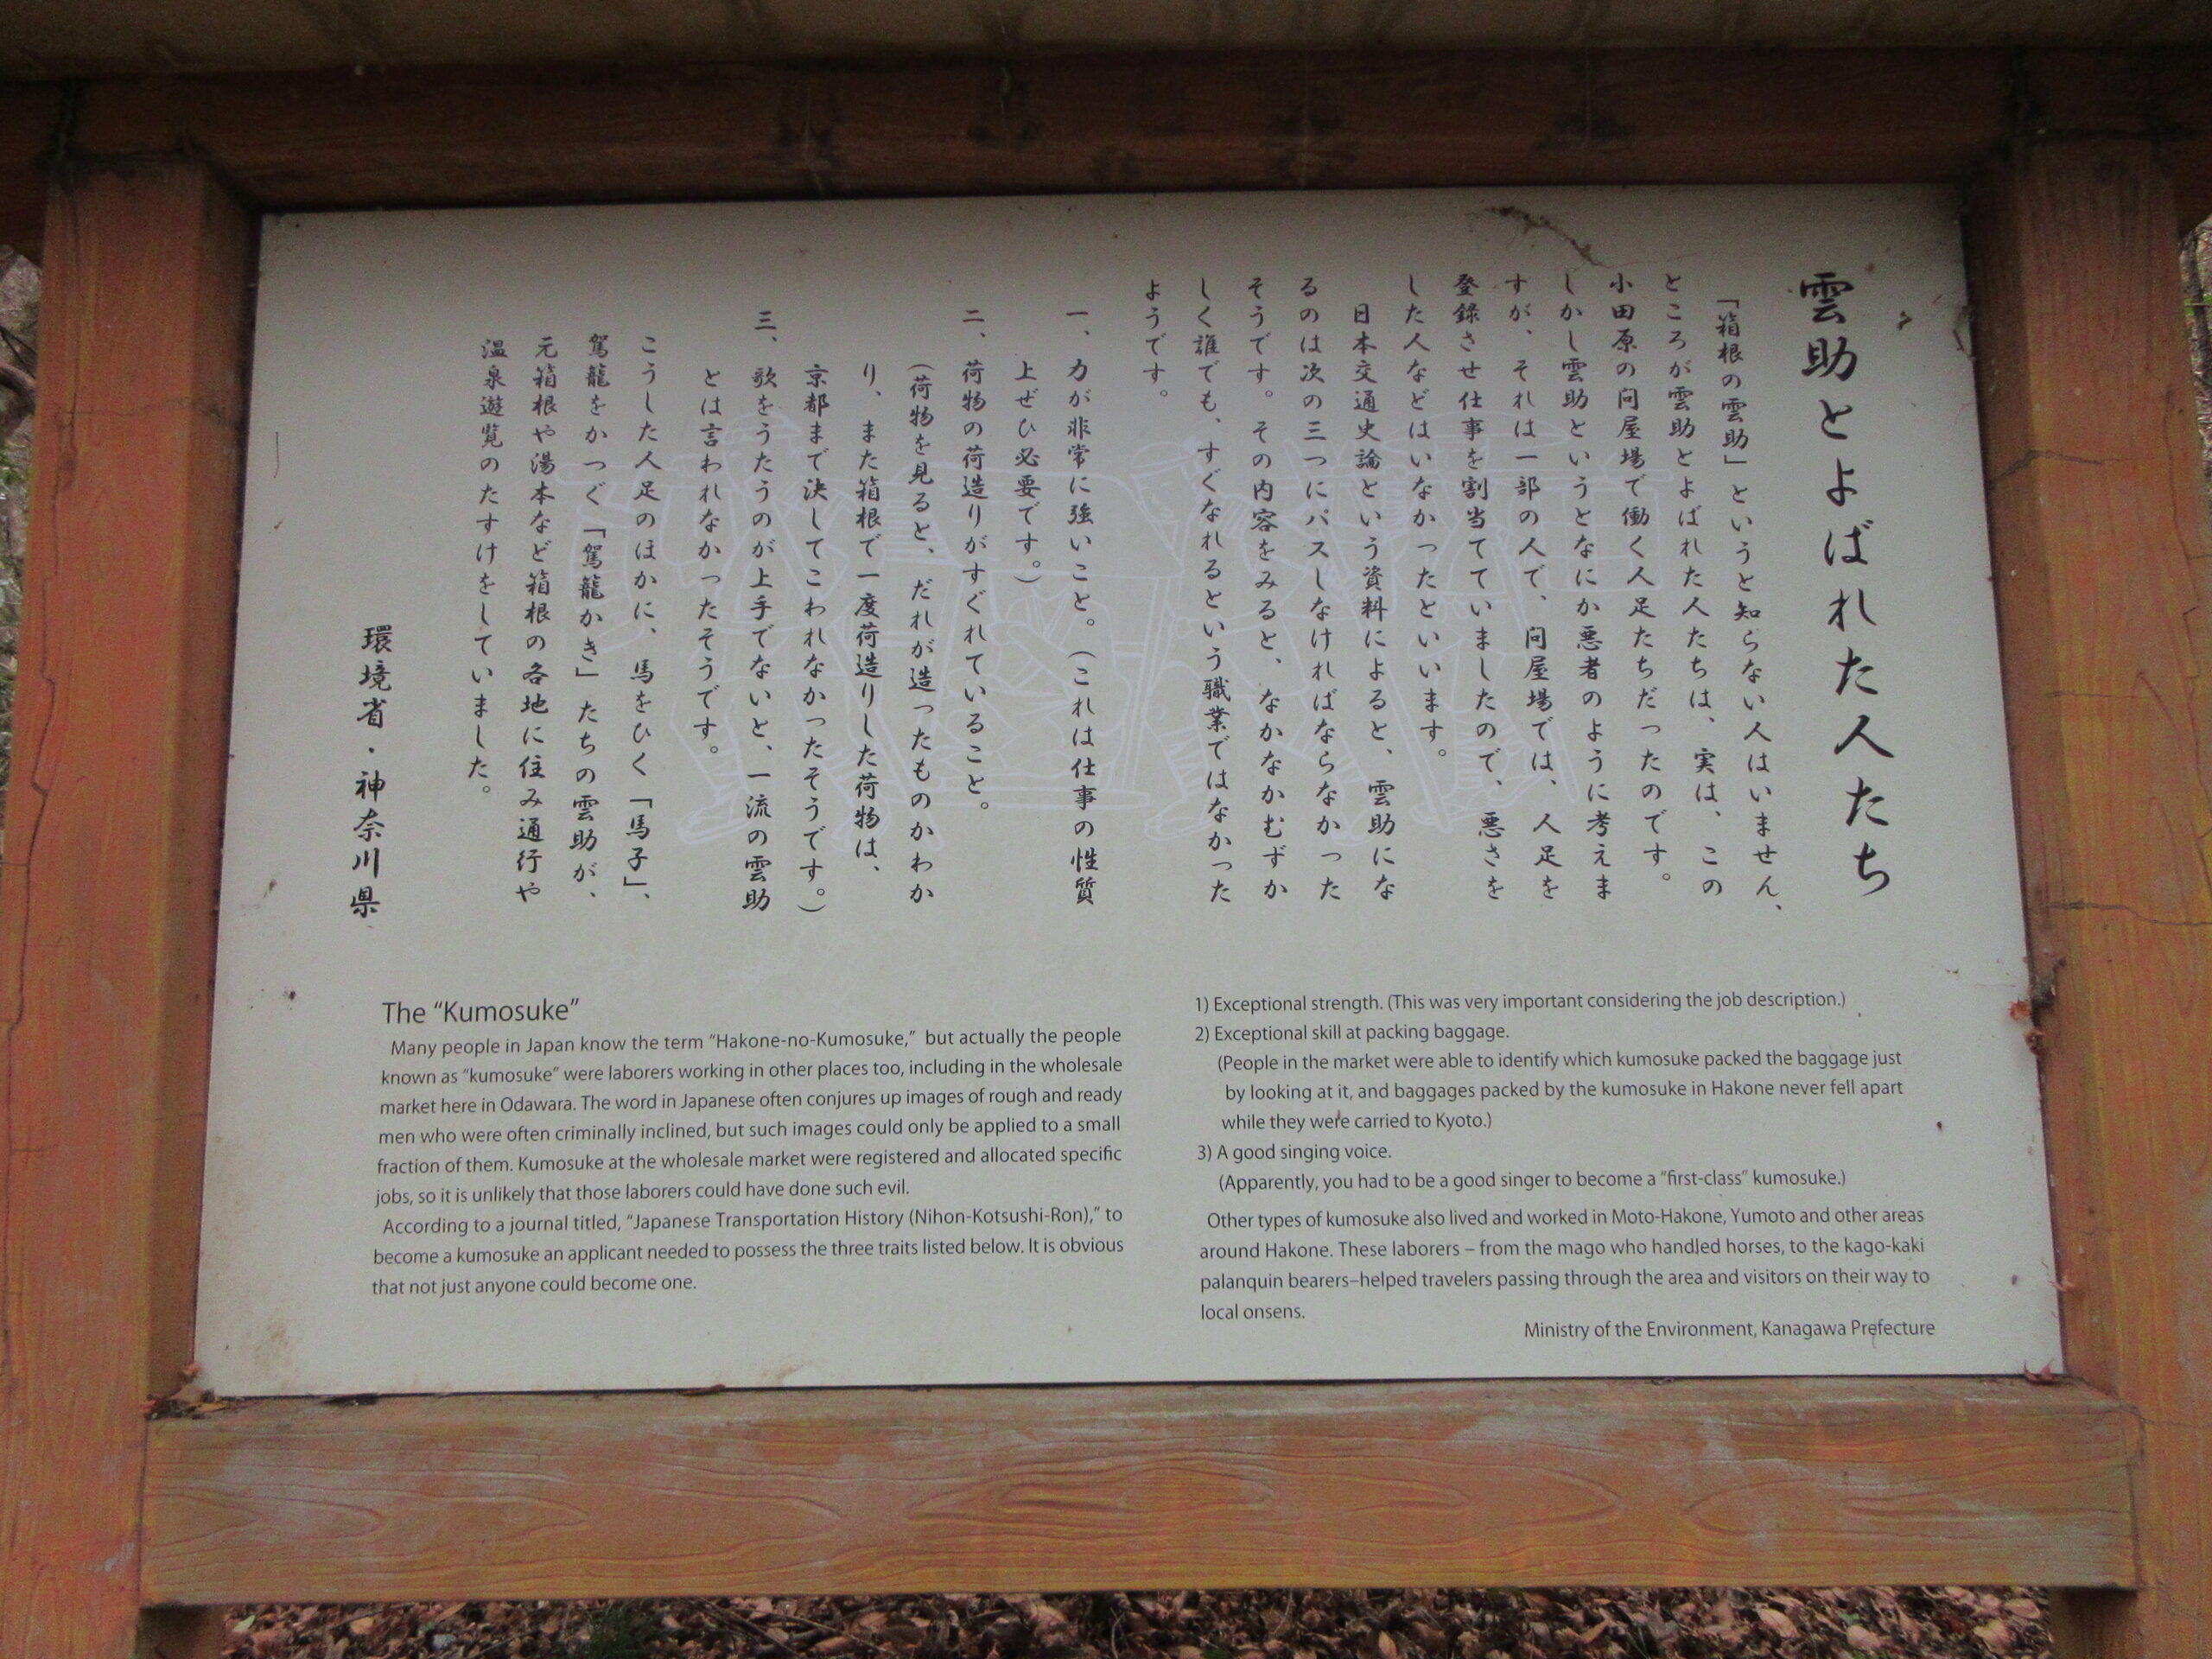 雲助とよばれた人たち
「箱根の雲助」というと知らない人はいません、
ところが雲助とよばれた人たちは、実は、この
小田原の問屋場で働く人足たちだったのです。
しかし雲助というとなにか悪者のように考えま
すが、それは一部の人で、問屋場では、人足を
登録させ仕事を割当てていましたので、悪さを
した人などはいなかったといいます。
日本交通史論という資料によると、雲助にな
るのは次の三つにパスしなければならなかった
そうです。その内容をみると、なかなかむずか
しく誰でも、すぐなれるという職業ではなかった
ようです。
一、力が非常に強いこと。(これは仕事の性質
上ぜひ必要です。)
二、荷物の荷造りがすぐれていること。
(荷物を見ると、だれが造ったものかわか
り、また箱根で一度荷造りした荷物は、
京都まで決してこわれなかったそうです。)
三、歌をうたうのが上手でないと、一流の雲助
とは言われなかったそうです。
こうした人足のほかに、馬をひく「馬子」、
駕籠をかつぐ「駕籠かき」たちの雲助が、
元箱根や湯本など箱根の各地に住み通行や
温泉遊覧のたすけをしていました。
環境省・神奈川県
The “Kumosuke”
Many people in Japan know the term “Hakone-no-Kumosuke,” but actually the people
known as “kumosuke” were laborers working in other places too, including in the wholesale
market here in Odawara. The word in Japanese often conjures up images of rough and ready
men who were often criminally inclined, but such images could only be applied to a small
fraction of them. Kumosuke at the wholesale market were registered and allocated specific
jobs, so it is unlikely that those laborers could have done such evil.
According to a journal titled, “Japanese Transportation History (Nihon-Kotsushi-Ron),” to
become a kumosuke an applicant needed to possess the three traits listed below. It is obvious
that not just anyone could become one.
1) Exceptional strength. (This was very important considering the job description.)
2) Exceptional skill at packing baggage.
(People in the market were able to identify which kumosuke packed the baggage just
by looking at it, and baggages packed by the kumosuke in Hakone never fell apart
while they were carried to Kyoto.)
3) A good singing voice.
(Apparently, you had to be a good singer to become a “first-class” kumosuke.)
Other types of kumosuke also lived and worked in Moto-Hakone, Yumoto and other areas
around Hakone. These laborers – from the mago who handled horses, to the kago-kaki
palanquin bearers–helped travelers passing through the area and visitors on their way to
local onsens.
Ministry of the Environment, Kanagawa Prefecture